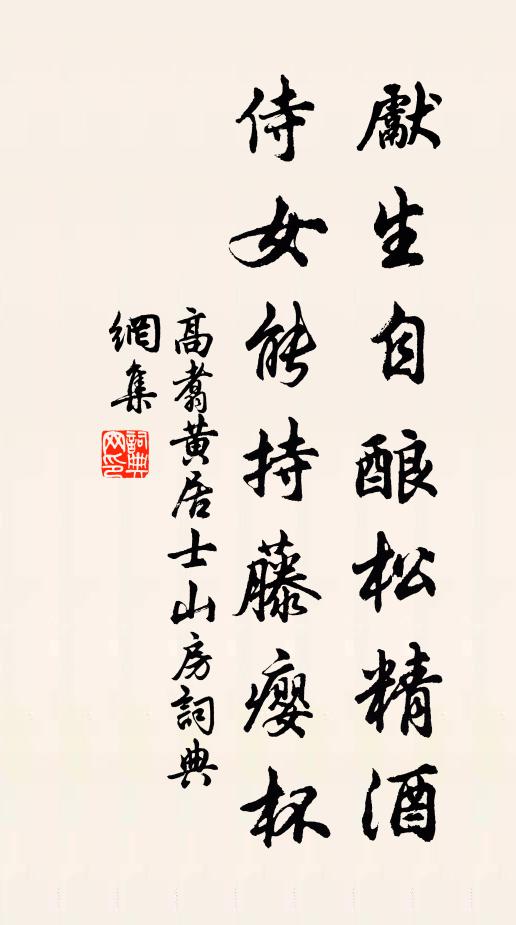 獻生自酿松精酒
侍女能持藤癭杯
高翥黄居士山房詞典
網集
詞典
网印